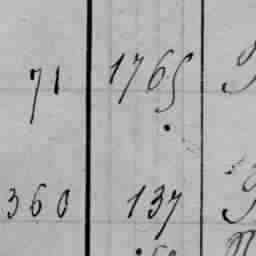 71 1765
360 137